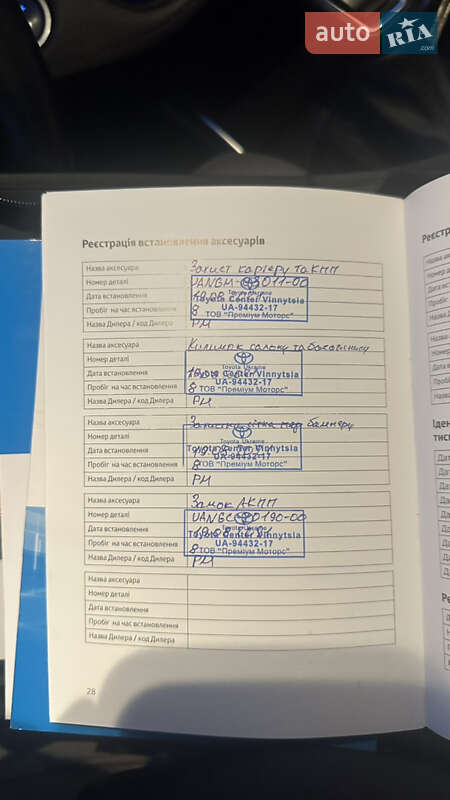 auto RIA.com
Реєстрація встановлення аксесуарів
Назва аксесуара Захист картеру та КПП
Номер деталі
Дата встановлення
Пробіг на час встановлення 8
Назва Дилера / код Дилера РМ
Toyota Ukraine
Toyota Center Vinnytsia
UA-94432-17
ТОВ "Преміум Моторс"
Назва аксесуара Килимок салону та багажнику
Номер деталі
Дата встановлення
Пробіг на час встановлення 8
Назва Дилера / код Дилера РМ
Toyota Ukraine
Toyota Center Vinnytsia
UA-94432-17
ТОВ "Преміум Моторс"
Назва аксесуара Захисна сітка бамперу
Номер деталі
Дата встановлення
Пробіг на час встановлення 8
Назва Дилера / код Дилера РМ
Toyota Ukraine
Toyota Center Vinnytsia
UA-94432-17
ТОВ "Преміум Моторс"
Назва аксесуара Замок АКПП
Номер деталі
Дата встановлення
Пробіг на час встановлення 8
Назва Дилера / код Дилера РМ
Toyota Ukraine
Toyota Center Vinnytsia
UA-94432-17
ТОВ "Преміум Моторс"
Назва аксесуара
Номер деталі
Дата встановлення
Пробіг на час встановлення
Назва Дилера / код Дилера
28